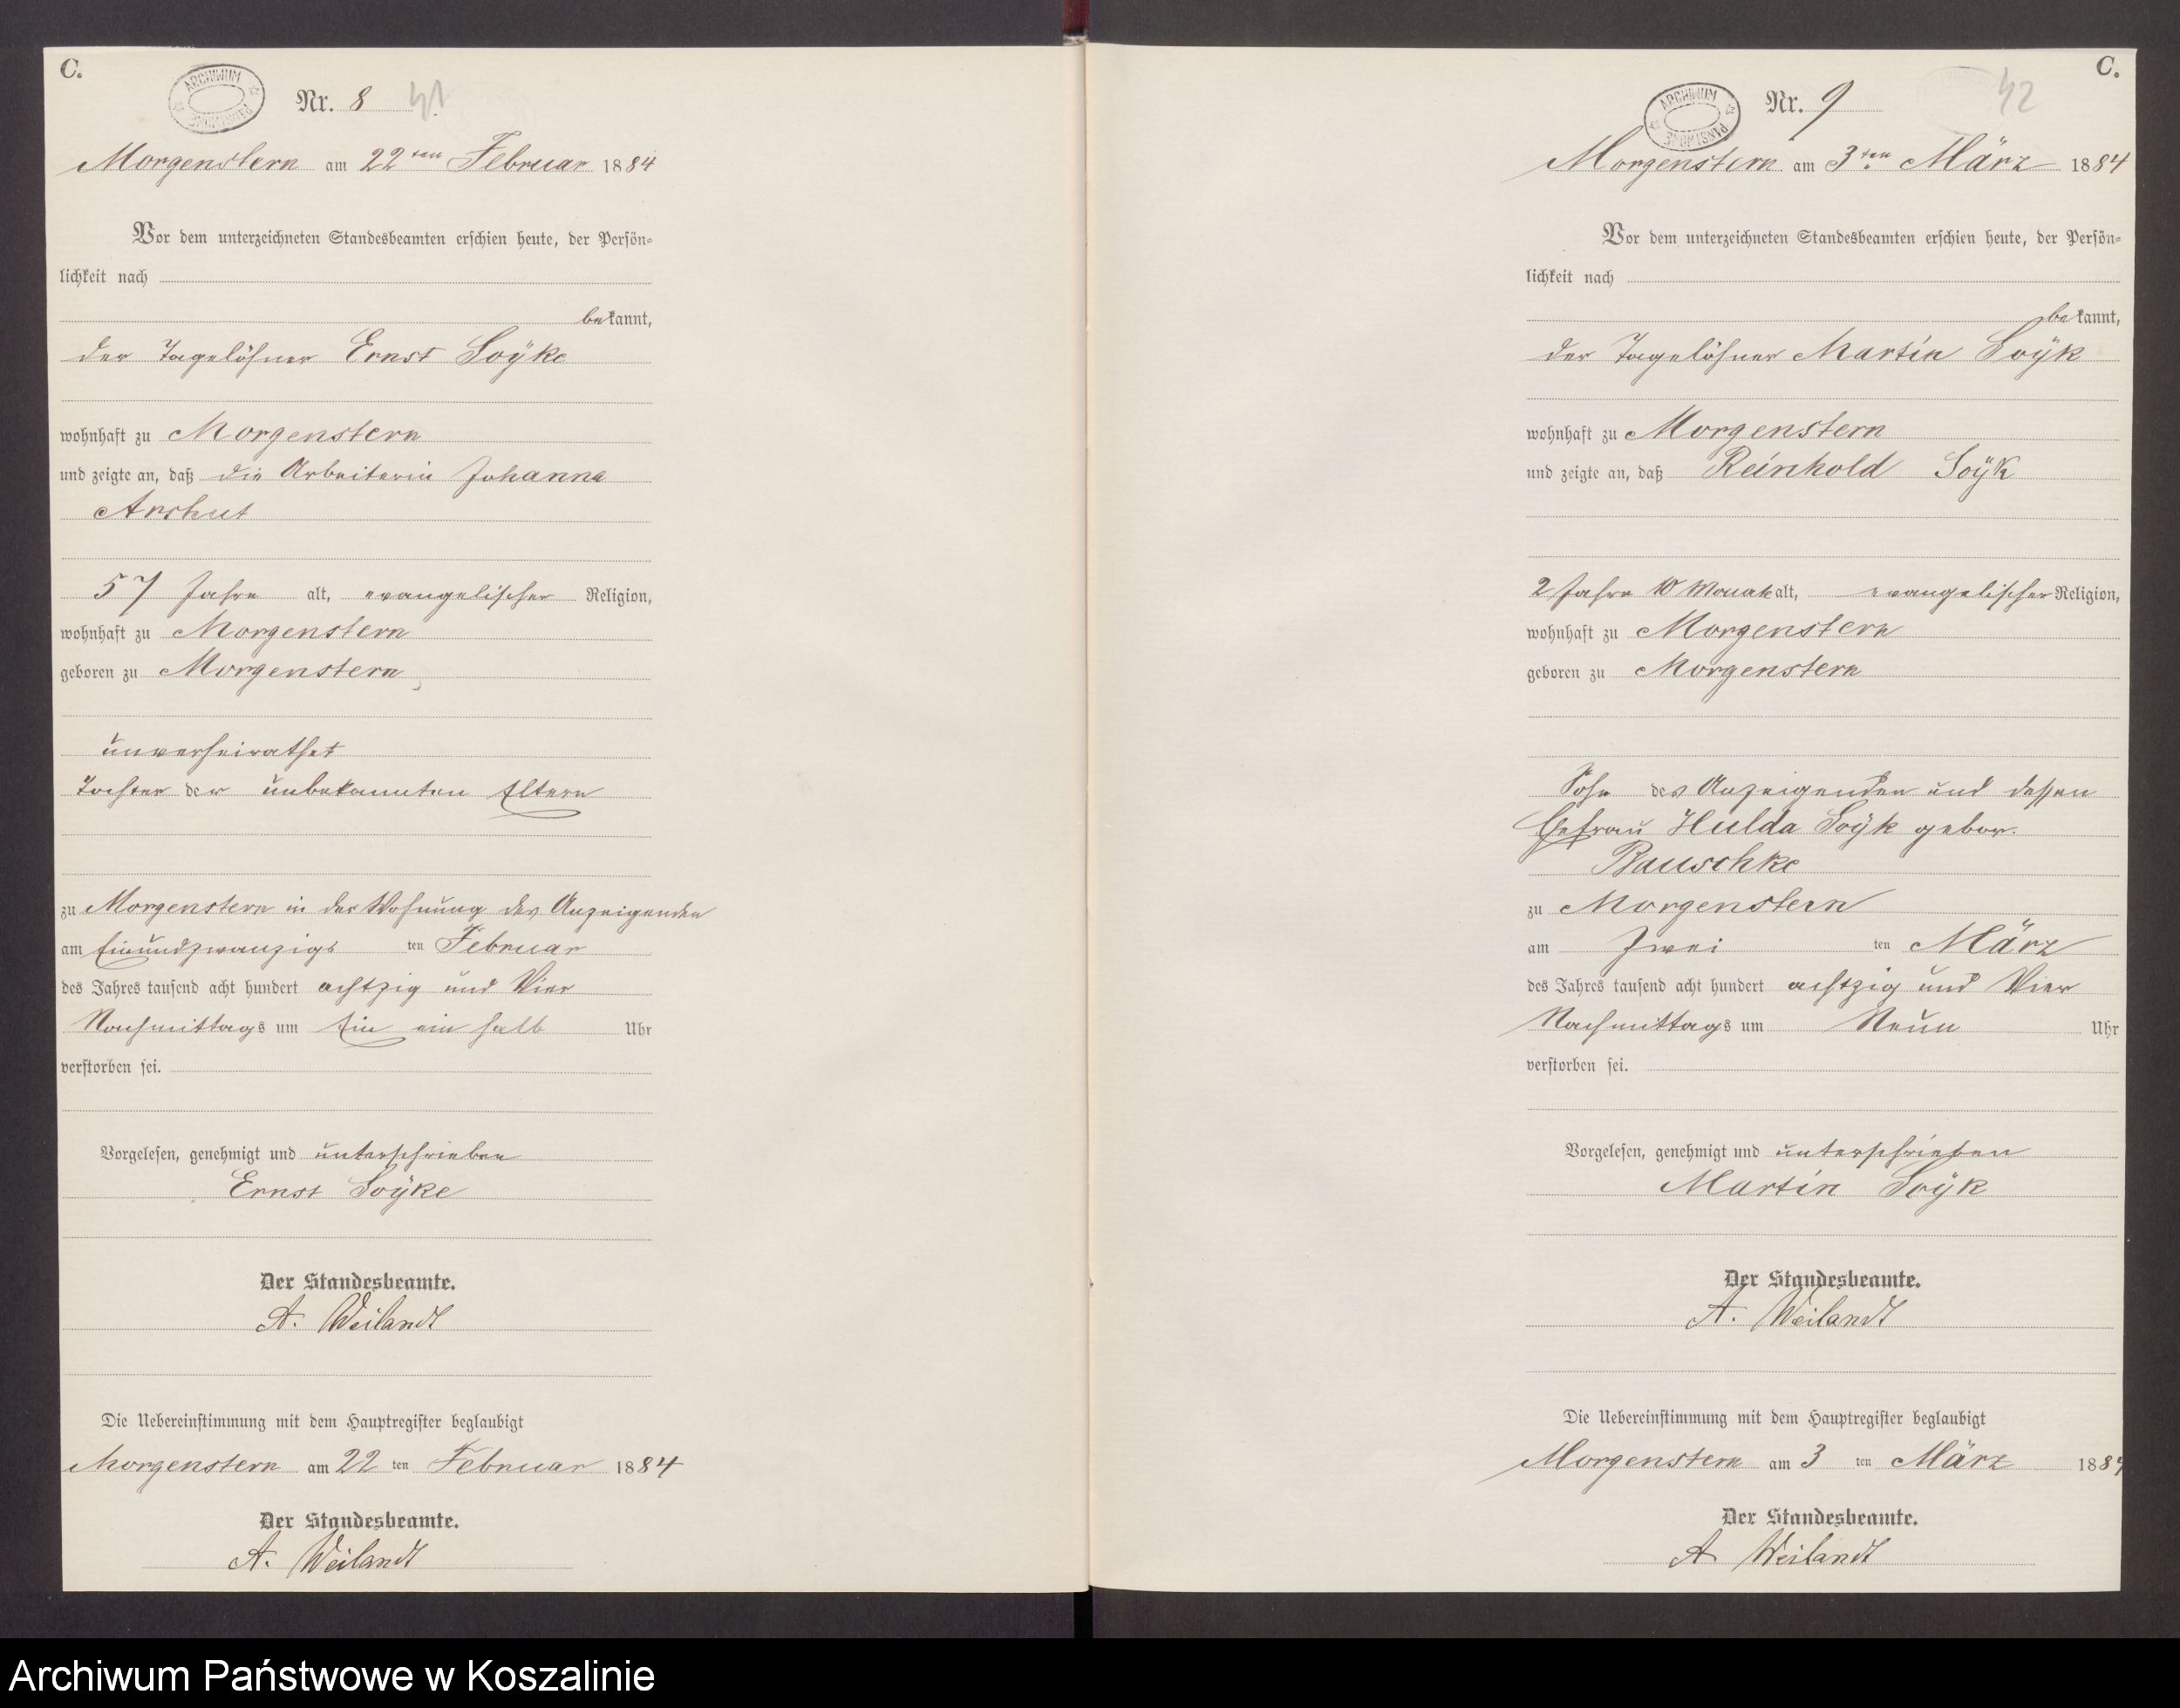 C.
ARCHIWUM PAŃSTWOWE
Nr. 8 41
Morgenstern am 22ten Februar 1884
Vor dem unterzeichneten Standesbeamten erschien heute, der Persön=
lichkeit nach
bekannt,
der Tagelöhner Ernst Soÿke
wohnhaft zu Morgenstern
und zeigte an, daß die Arbeiterin Johanna
Arshut
57 Jahre alt, evangelischer Religion,
wohnhaft zu Morgenstern
geboren zu Morgenstern,
unverheirathet
Tochter der unbekannten Eltern
zu Morgenstern in der Wohnung des Anzeigenden
am Einundzwanzigs ten Februar
des Jahres tausend acht hundert achtzig und Vier
Nachmittags um Ein ein halb Uhr
verstorben sei.
Vorgelesen, genehmigt und unterschrieben
Ernst Soÿke
Der Standesbeamte.
A. Weilandt
Die Uebereinstimmung mit dem Hauptregister beglaubigt
Morgenstern am 22 ten Februar 1884
Der Standesbeamte.
A. Weilandt
C.
ARCHIWUM PAŃSTWOWE
Nr. 9 42
Morgenstern am 3ten März 1884
Vor dem unterzeichneten Standesbeamten erschien heute, der Persön=
lichkeit nach
bekannt,
der Tagelöhner Martin Soÿk
wohnhaft zu Morgenstern
und zeigte an, daß Reinhold Soÿk
2 Jahre 10 Monate alt, evangelischer Religion,
wohnhaft zu Morgenstern
geboren zu Morgenstern
Sohn des Anzeigenden und dessen
Ehefrau Hulda Soÿk gebor.
Bauschke
zu Morgenstern
am Zwei ten März
des Jahres tausend acht hundert achtzig und Vier
Nachmittags um Neun Uhr
verstorben sei.
Vorgelesen, genehmigt und unterschrieben
Martin Soÿk
Der Standesbeamte.
A. Weilandt
Die Uebereinstimmung mit dem Hauptregister beglaubigt
Morgenstern am 3 ten März 1884
Der Standesbeamte.
A. Weilandt
Archiwum Państwowe w Koszalinie